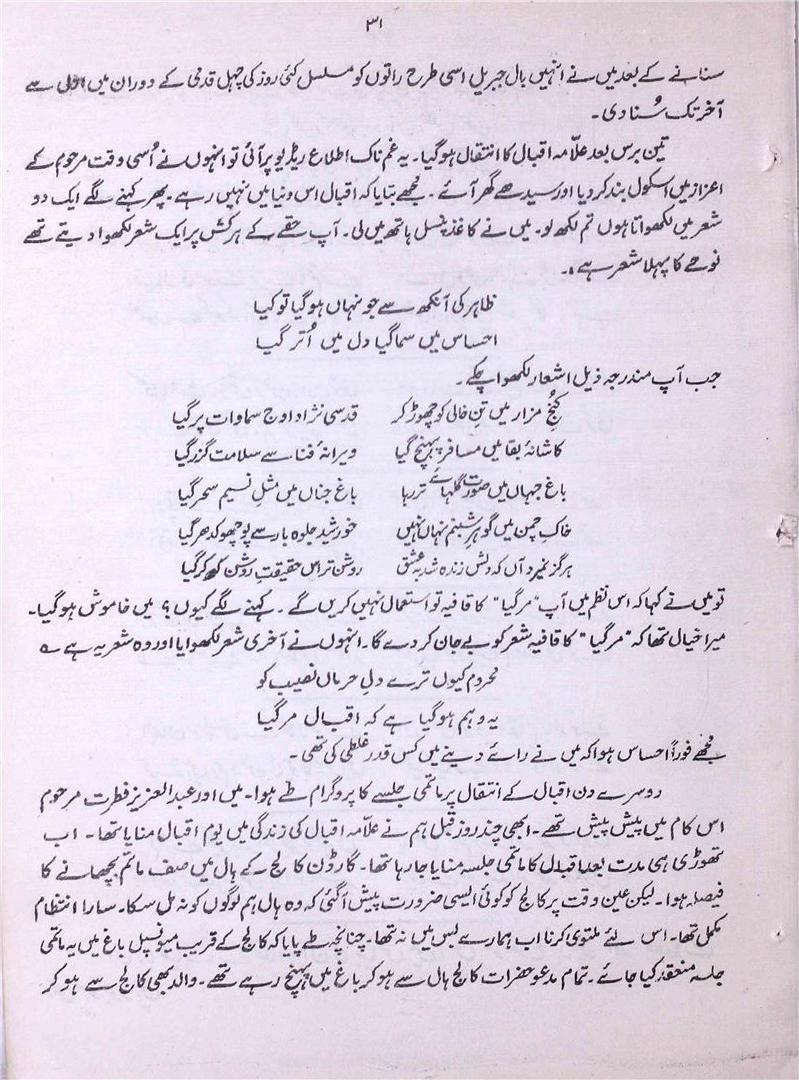 ۳۱
سنانے کے بعد میں نے انہیں بال جبریل اسی طرح راتوں کو مسلسل کئی روز کی چہل قدمی کے دوران میں اوّل سے
آخر تک سُنا دی۔
تین برس بعد علّامہ اقبال کا انتقال ہوگیا۔ یہ غم ناک اطلاع ریڈیو پر آئی تو انہوں نے اُسی وقت مرحوم کے
اعزاز میں اسکول بند کر دیا اور سیدھے گھر آئے۔ مجھے بتایا کہ اقبال اس دنیا میں نہیں رہے۔ پھر کہنے لگے ایک دو
شعر میں لکھواتا ہوں تم لکھ لو۔ میں نے کاغذ پنسل ہاتھ میں لی۔ آپ حقے کے ہر کش پر ایک شعر لکھوا دیتے تھے
نوحے کا پہلا شعر ہے،۔
ظاہر کی آنکھ سے جو نہاں ہوگیا تو کیا
احساس میں سما گیا دل میں اُتر گیا
جب آپ مندرجہ ذیل اشعار لکھوا چکے۔
کُنجِ مزار میں تنِ خاکی کو چھوڑ کر قدسی نژاد اوج سماوات پر گیا
کاشانۂ بقا میں مسافر پہنچ گیا ویرانۂ فنا سے سلامت گزر گیا
باغِ جہاں میں صورتِ گلہائے تر رہا باغ جناں میں مثلِ نسیم سحر گیا
خاکِ چمن میں گوہرِ شبنم نہاں نہیں خورشید جلوہ بار سے پوچھو کدھر گیا
ہرگز نمیرد آں کہ دلش زندہ شد بہ عشق روشن تر اس حقیقتِ روشن کو کر گیا
تو میں نے کہا کہ اس نظم میں آپ "مر گیا" کا قافیہ تو استعمال نہیں کریں گے۔ کہنے لگے کیوں؟ میں خاموش ہوگیا۔
میرا خیال تھا کہ "مر گیا" کا قافیہ شعر کو بے جان کر دے گا۔ انہوں نے آخری شعر لکھوایا اور وہ شعر یہ ہے ؎
محروم کیوں ترے دلِ حرماں نصیب کو
یہ وہم ہوگیا ہے کہ اقبال مر گیا
مجھے فوراً احساس ہوا کہ میں نے رائے دینے میں کس قدر غلطی کی تھی۔
دوسرے دن اقبال کے انتقال پر ماتمی جلسے کا پروگرام طے ہوا۔ میں اور عبدالعزیز فطرت مرحوم
اس کام میں پیش پیش تھے۔ ابھی چند روز قبل ہم نے علّامہ اقبال کی زندگی میں یوم اقبال منایا تھا۔ اب
تھوڑی ہی مدت بعد اقبال کا ماتمی جلسہ منایا جا رہا تھا۔ گارڈن کالج کے ہال میں صف ماتم بچھانے کا
فیصلہ ہوا۔ لیکن عین وقت پر کالج کو کوئی ایسی ضرورت پیش آگئی کہ وہ ہال ہم لوگوں کو نہ مل سکا۔ سارا انتظام
مکمل تھا۔ اس لئے ملتوی کرنا اب ہمارے بس میں نہ تھا۔ چنانچہ طے پایا کہ کالج کے قریب میونسپل باغ میں یہ ماتمی
جلسہ منعقد کیا جائے۔ تمام مدعو حضرات کالج ہال سے ہو کر باغ میں پہنچ رہے تھے۔ والد بھی کالج سے ہو کر